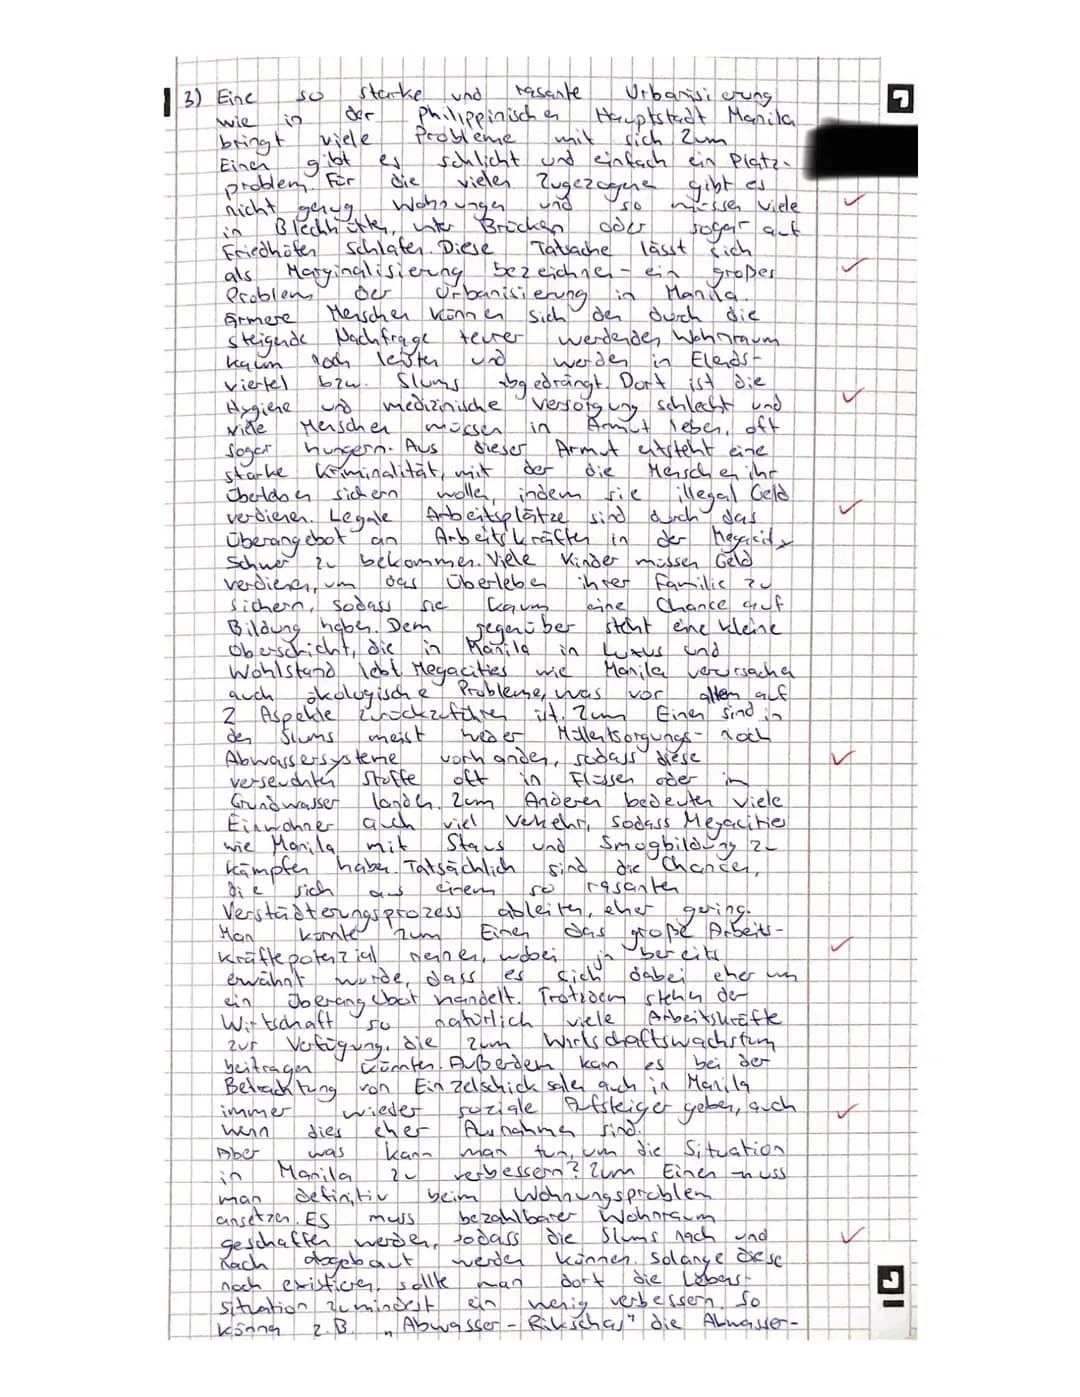 3) Eine so starke und rasante Urbanisierung
wie in der Philippinischen Hauptstadt Manila
bringt viele Probleme mit sich Zum
Einen gibt es schlicht und einfach ein Platz-
problem. Für die vielen Zugezogene gibt es
nicht genug Wohnungen und so müssen viele
in Blechhütten, unter Brücken oder sogar auf
Friedhöfen schlafen. Diese Tatsache lässt sich
als Marginalisierung bezeichnen - ein großes
Problem der Urbanisierung in Manila.
Ärmere Menschen können sich den durch die
steigende Nachfrage teurer werdenden Wohnraum
kaum noch leisten und werden in Elends-
viertel bzw. Slums abgedrängt. Dort ist die
Hygiene und medizinische Versorgung schlecht und
viele Menschen müssen in Armut leben, oft
sogar hungern. Aus dieser Armut entsteht eine
starke Kriminalität, mit der die Menschen ihr
Überleben sichern wollen, indem sie illegal Geld
verdienen. Legale Arbeitsplätze sind durch das
Überangebot an Arbeitskräften in der Megacity
schwer zu bekommen. Viele Kinder müssen Geld
verdienen, um das Überleben ihrer Familie zu
sichern, sodass sie kaum eine Chance auf
Bildung haben. Dem gegenüber steht eine kleine
Oberschicht, die in Manila in Luxus und
Wohlstand lebt Megacities wie Manila verursachen
auch ökologische Probleme, was vor allem auf
2 Aspekte zurückzuführen ist. Zum Einen sind in
den Slums meist weder Müllentsorgungs- noch
Abwassersysteme vorhanden, sodass diese
verseuchten Stoffe oft in Flüssen oder im
Grundwasser landen. Zum Anderen bedeuten viele
Einwohner auch viel Verkehr, sodass Megacities
wie Manila mit Staus und Smogbildung zu
kämpfen haben. Tatsächlich sind die Chancen,
die sich aus einem so rasanten
Verstädterungsprozess ableiten, eher gering.
Man könnte zum Einen das große Arbeits-
kräftepotenzial nennen, wobei ja bereits
erwähnt wurde, dass es sich dabei eher um
ein Überangebot handelt. Trotzdem stehen der
Wirtschaft so natürlich viele Arbeitskräfte
zur Verfügung, die zum Wirtschaftswachstum
beitragen könnten. Außerdem kann es bei der
Betrachtung von Einzelschicksalen auch in Manila
immer wieder soziale Aufsteiger geben, auch
wenn dies eher Ausnahmen sind.
Aber was kann man tun, um die Situation
in Manila zu verbessern? Zum Einen muss
man definitiv beim Wohnungsproblem
ansetzen. Es muss bezahlbarer Wohnraum
geschaffen werden, sodass die Slums nach und
nach abgebaut werden können. Solange diese
noch existieren, sollte man dort die Lebens-
situation zumindest ein wenig verbessern. So
können z.B. "Abwasser-Rikschas" die Abwasser-